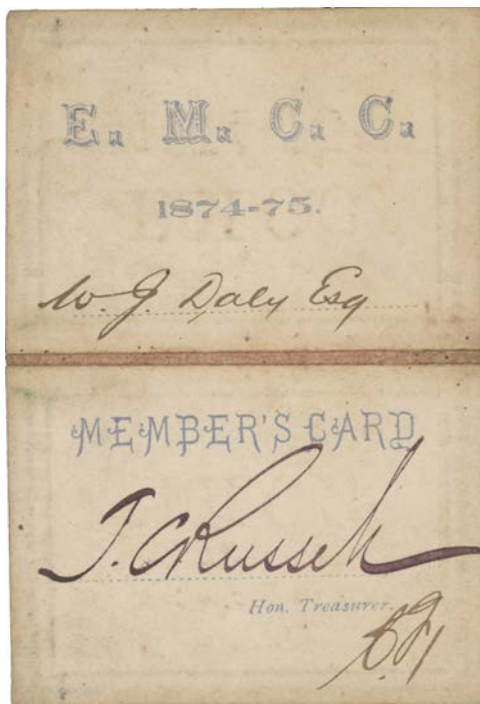 E. M. C. C.
1874-75.
W. J. Daly Esq
MEMBER'S CARD
J. C Russell
Hon. Treasurer.